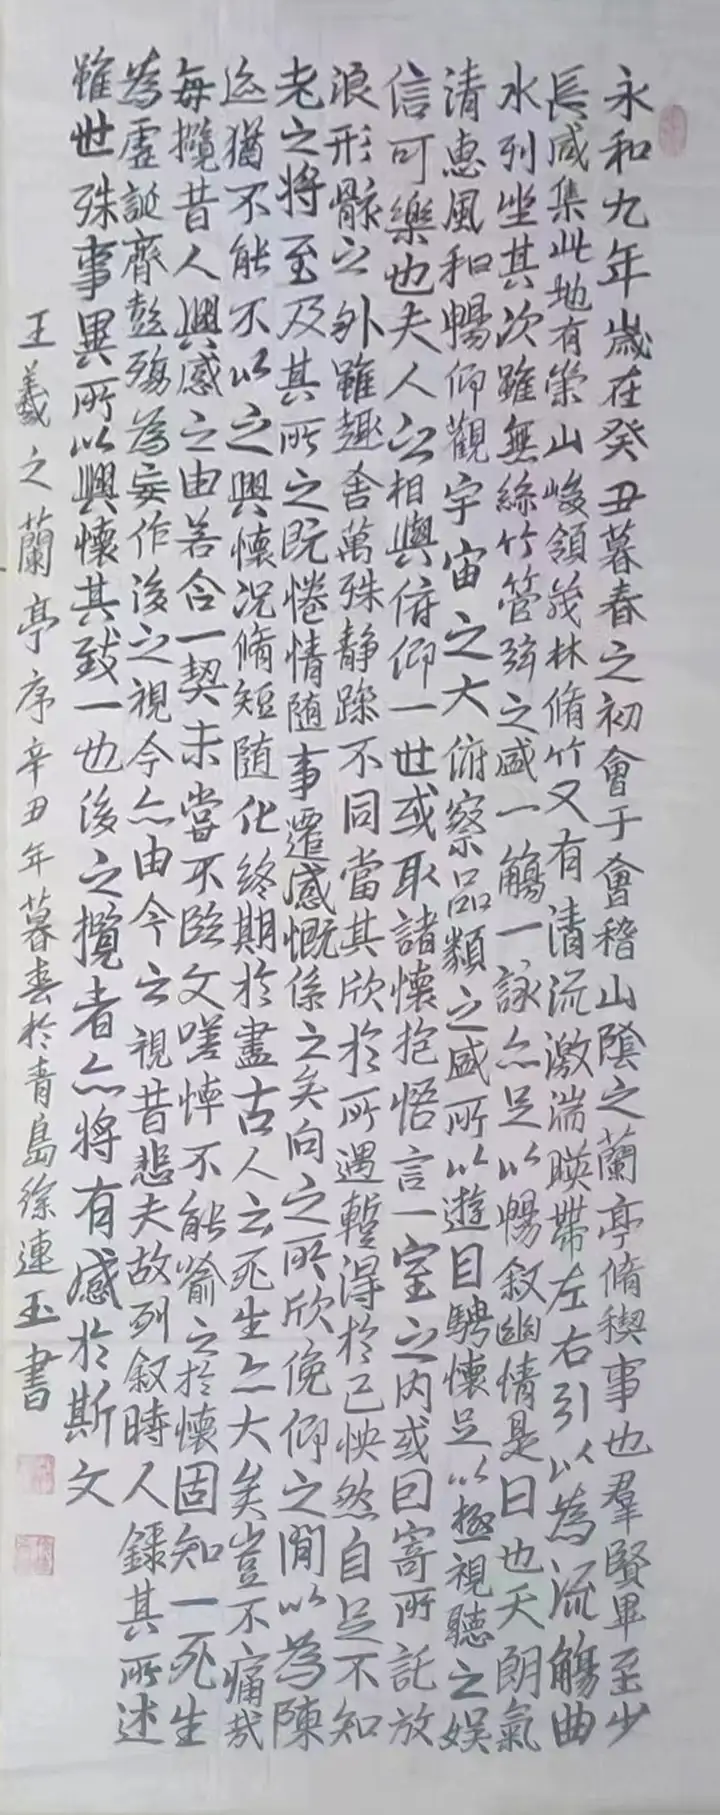 永和九年歲在癸丑暮春之初會于會稽山陰之蘭亭脩稧事也羣賢畢至少
長咸集此地有崇山峻領茂林脩竹又有清流激湍暎帶左右引以為流觴曲
水列坐其次雖無絲竹管弦之盛一觴一詠亦足以暢敘幽情是日也天朗氣
清惠風和暢仰觀宇宙之大俯察品類之盛所以遊目騁懷足以極視聽之娛
信可樂也夫人之相與俯仰一世或取諸懷抱悟言一室之內或因寄所託放
浪形骸之外雖趣舍萬殊静躁不同當其欣於所遇暫得於己怏然自足不知
老之将至及其所之既惓情随事遷感慨係之矣向之所欣俛仰之閒以為陳
迹猶不能不以之興懷况脩短随化終期於盡古人云死生亦大矣豈不痛哉
每攬昔人興感之由若合一契未嘗不臨文嗟悼不能喻之於懷固知一死生
為虚誕齊彭殤為妄作後之視今亦由今之視昔悲夫故列敘時人錄其所述
雖世殊事異所以興懷其致一也後之攬者亦将有感於斯文
王羲之蘭亭序辛丑年暮春於青島徐連玉書